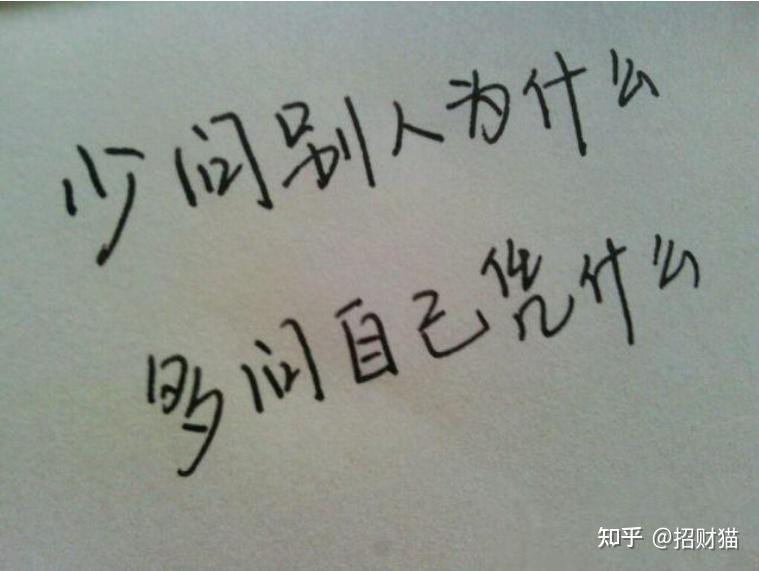 少问别人为什么
多问自己凭什么
知乎 @招财猫